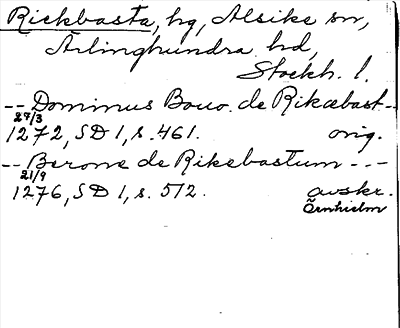 Rickbasta, hg, Alsike sn,
Ärlinghundra hd,
Stockh. l.
-- Dominus Bouo. de Rikæbast --
27/3
1272, SD 1, s. 461. orig.
-- Berone de Rikebastum ---
21/9
1276, SD 1, s. 512. avskr.
Örnhielm